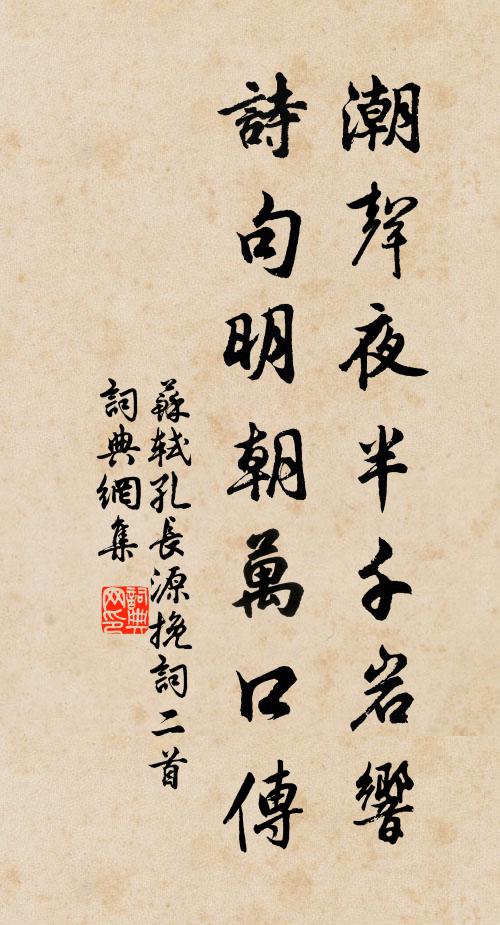 潮聲夜半千岩響
詩句明朝萬口傳
蘇軾孔長源挽詞二首
詞典網集
詞典网印